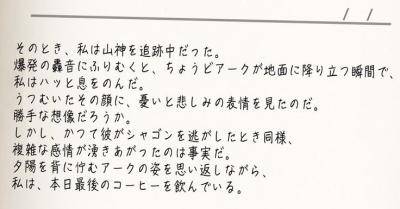 / /
そのとき、私は山神を追跡中だった。
爆発の轟音にふりむくと、ちょうどアークが地面に降り立つ瞬間で、
私はハッと息をのんだ。
うつむいたその顔に、憂いと悲しみの表情を見たのだ。
勝手な想像だろうか。
しかし、かつて彼がシャゴンを逃がしたとき同様、
複雑な感情が湧きあがったのは事実だ。
夕陽を背に佇むアークの姿を思い返しながら、
私は、本日最後のコーヒーを飲んでいる。